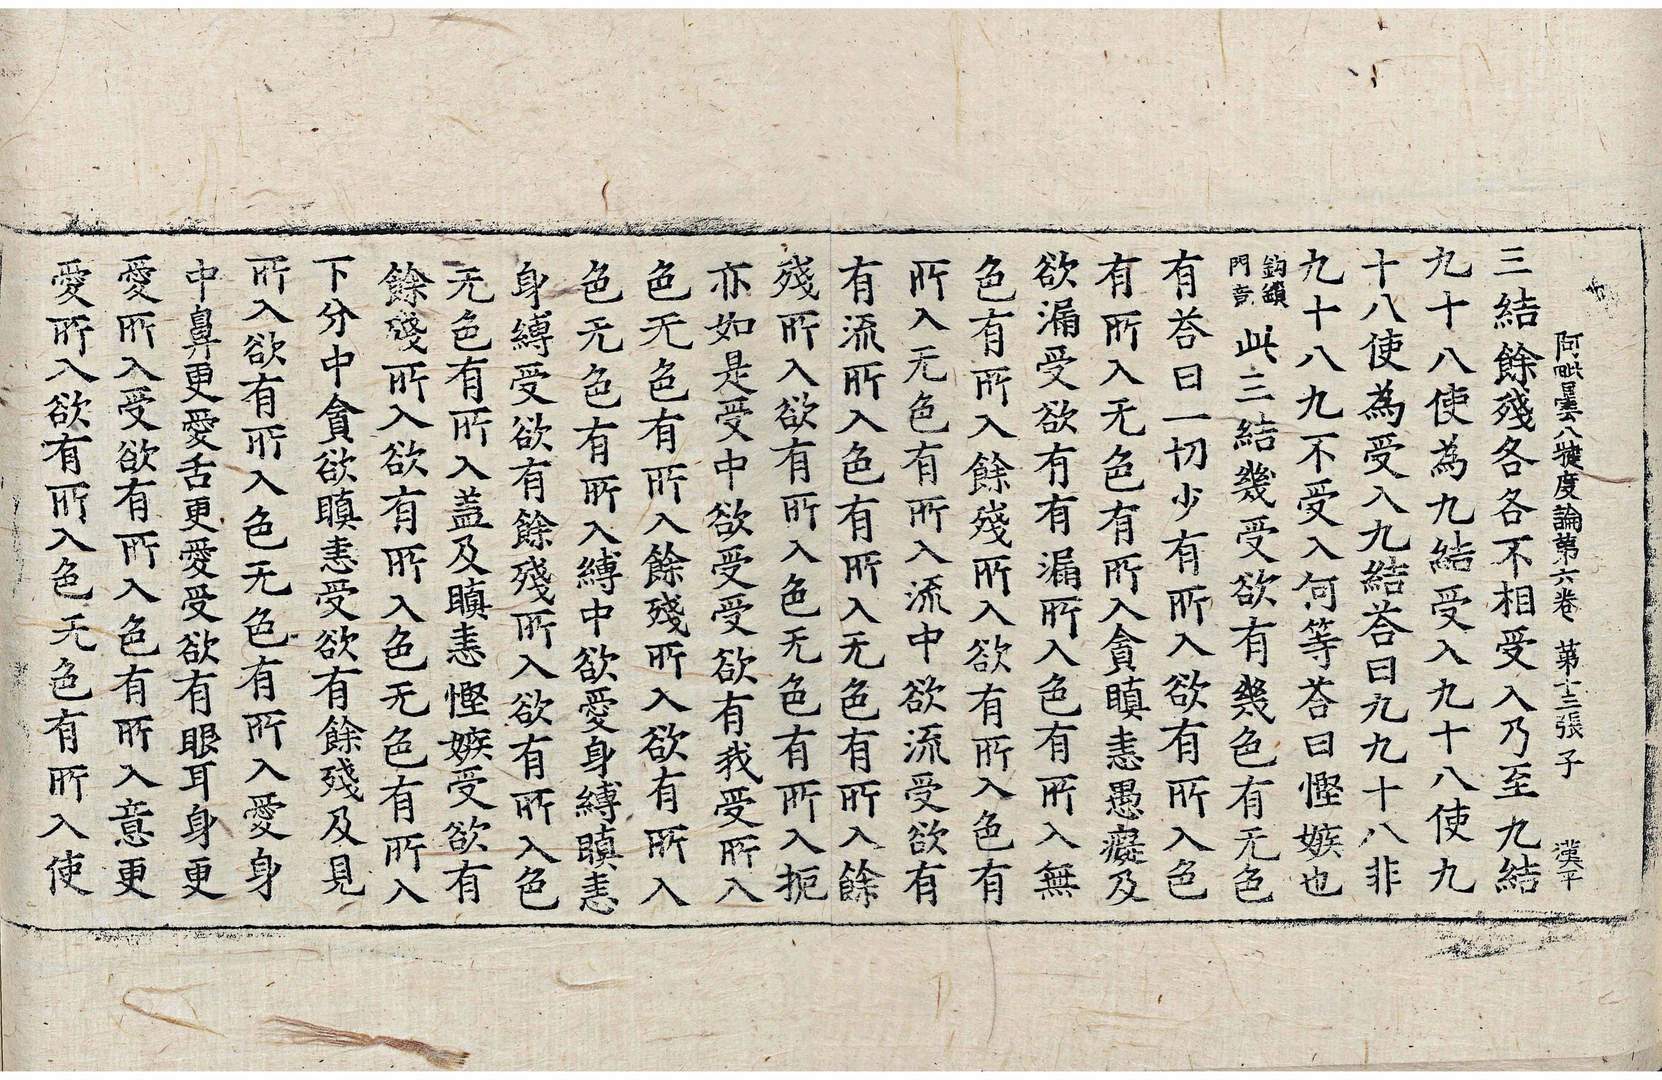 阿毗曇八犍度論第六卷 第十三張 子 漢平
三結餘殘各各不相受入乃至九結
九十八使為九結受入九十八使九
十八使為受入九結荅曰九九十八非
九十八九不受入何等荅曰慳嫉也
鈎鎖門竟此三結幾受欲有幾色有无色
有荅曰一切少有所入欲有所入色
有所入无色有所入貪瞋恚愚癡及
欲漏受欲有有漏所入色有所入無
色有所入餘殘所入欲有所入色有
所入无色有所入流中欲流受欲有
有流所入色有所入无色有所入餘
殘所入欲有所入色无色有所入扼
亦如是受中欲受受欲有我受所入
色无色有所入餘殘所入欲有所入
色无色有所入縛中欲愛身縛瞋恚
身縛受欲有餘殘所入欲有所入色
无色有所入盖及瞋恚慳嫉受欲有
餘殘所入欲有所入色无色有所入
下分中貪欲瞋恚受欲有餘殘及見
所入欲有所入色无色有所入愛身
中鼻更愛舌更愛受欲有眼耳身更
愛所入受欲有所入色有所入意更
愛所入欲有所入色无色有所入使